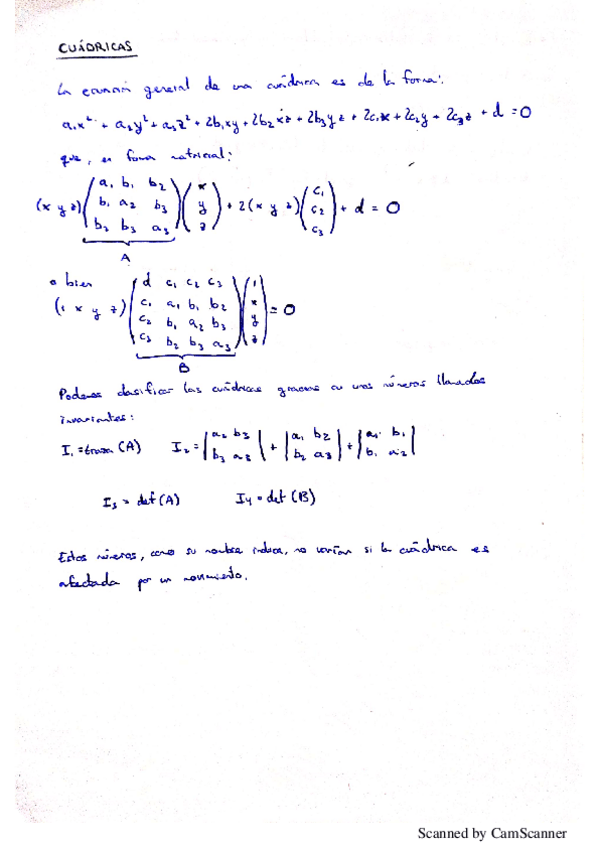 CUÁDRICAS
La ecuación general de una cuádrica es de la forma:
a₁x² + a₂y² + a₃z² + 2b₁xy + 2b₂xz + 2b₃yz + 2c₁x + 2c₂y + 2c₃z + d = 0
que, en forma matricial:
(x y z) (a₁ b₁ b₂ / b₁ a₂ b₃ / b₂ b₃ a₃) (x / y / z) + 2(x y z) (c₁ / c₂ / c₃) + d = 0
A
o bien
(1 x y z) (d c₁ c₂ c₃ / c₁ a₁ b₁ b₂ / c₂ b₁ a₂ b₃ / c₃ b₂ b₃ a₃) (1 / x / y / z) = 0
B
Podemos clasificar las cuádricas gracias a unos números llamados
invariantes:
I₁ = traza (A) I₂ = |a₂ b₃ / b₃ a₃| + |a₁ b₂ / b₂ a₃| + |a₁ b₁ / b₁ a₂|
I₃ = det (A) I₄ = det (B)
Estos números, como su nombre indica, no varían si la cuádrica es
afectada por un movimiento.
Scanned by CamScanner